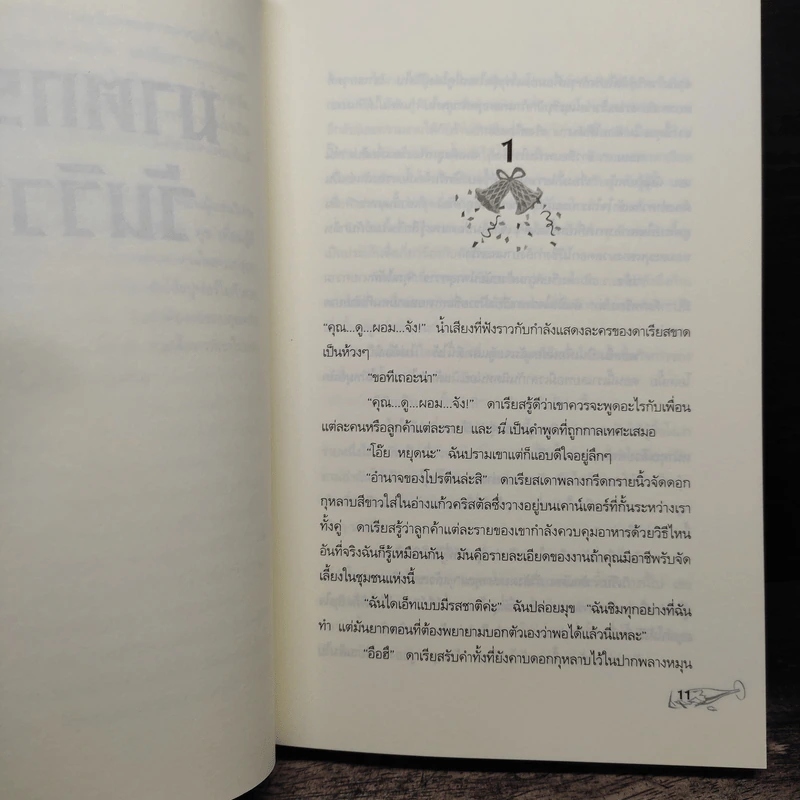 1
“คุณ...ดู...ผอม...จัง!” น้ำเสียงที่ฟังราวกับกำลังแสดงละครของดาเรียสขาด
เป็นห้วงๆ
“ขอทีเถอะน่า”
“คุณ...ดู...ผอม...จัง!” ดาเรียสรู้ดีว่าเขาควรจะพูดอะไรกับเพื่อน
แต่ละคนหรือลูกค้าแต่ละราย และ นี่ เป็นคำพูดที่ถูกกาลเทศะเสมอ
“โอ๊ย หยุดนะ” ฉันปรามเขาแต่ก็แอบดีใจอยู่ลึกๆ
“อำนาจของโปรตีนล่ะสิ” ดาเรียสเดาพลางกรีดกรายนิ้วจัดดอก
กุหลาบสีขาวใส่ในอ่างแก้วคริสตัลซึ่งวางอยู่บนเคาน์เตอร์ที่กั้นระหว่างเรา
ทั้งคู่ ดาเรียสรู้ว่าลูกค้าแต่ละรายของเขากำลังควบคุมอาหารด้วยวิธีไหน
อันที่จริงฉันก็รู้เหมือนกัน มันคือรายละเอียดของงานถ้าคุณมีอาชีพรับจัด
เลี้ยงในชุมชนแห่งนี้
“ฉันไดเอ็ทแบบมีรสชาติค่ะ” ฉันปล่อยมุข “ฉันชิมทุกอย่างที่ฉัน
ทำ แต่มันยากตอนที่ต้องพยายามบอกตัวเองว่าพอได้แล้วนี่แหละ”
“อือฮึ” ดาเรียสรับคำทั้งที่ยังคาบดอกกุหลาบไว้ในปากพลางหมุน
11